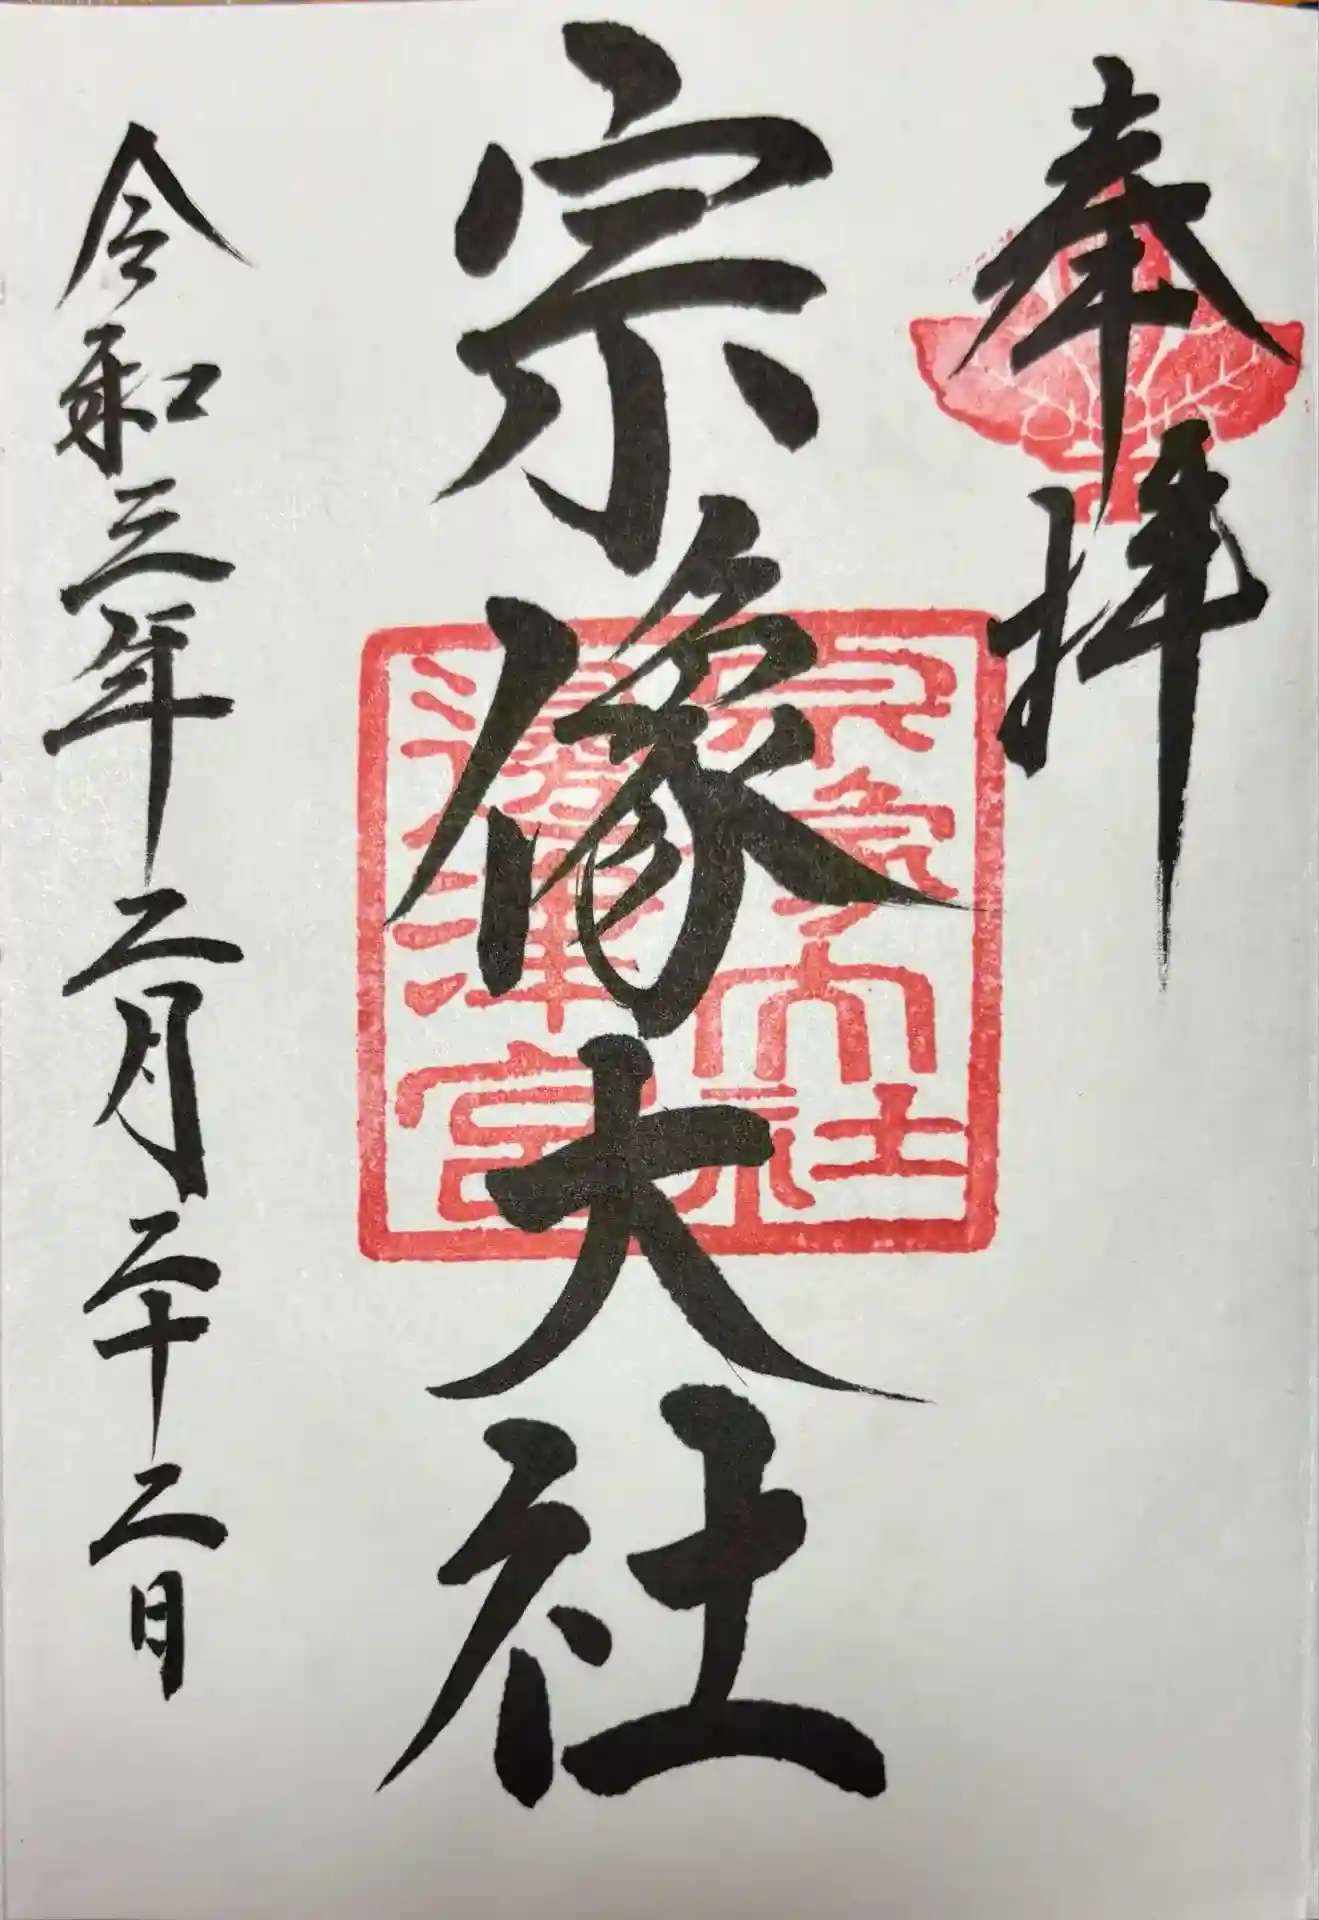 奉拝
宗像大社
宗像大社
邊津宮
令和三年二月二十二日